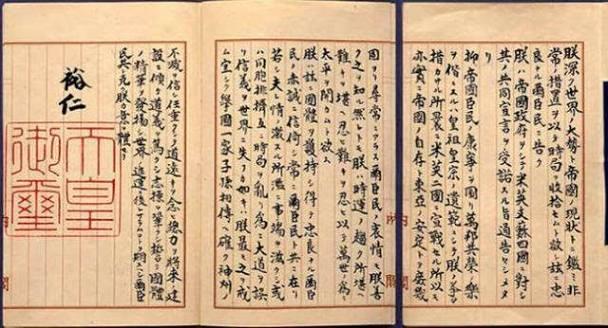 朕深ク世界ノ大勢ト帝國ノ現狀トニ鑑ミ非
常ノ措置ヲ以テ時局ヲ收拾セムト欲シ茲ニ忠
良ナル爾臣民ニ告ク
朕ハ帝國政府ヲシテ米英支蘇四國ニ對シ
其ノ共同宣言ヲ受諾スル旨通告セシメタ
リ
抑帝國臣民ノ康寧ヲ圖リ萬邦共榮ノ樂
ヲ偕ニスルハ皇祖皇宗ノ遺範ニシテ朕ノ拳々
措カサル所曩ニ米英二國ニ宣戰セル所以モ
亦實ニ帝國ノ自存ト東亞ノ安定トヲ庶幾
内閣
固ヨリ尋常ニアラス爾臣民ノ衷情モ朕善
ク之ヲ知ル然レトモ朕ハ時運ノ趨ク所堪ヘ
難キヲ堪ヘ忍ヒ難キヲ忍ヒ以テ萬世ノ爲ニ
太平ヲ開カムト欲ス
朕ハ茲ニ國體ヲ護持シ得テ忠良ナル爾臣
民ノ赤誠ニ信倚シ常ニ爾臣民ト共ニ在リ
若シ夫レ情ノ激スル所濫ニ事端ヲ滋クシ或
ハ同胞排擠互ニ時局ヲ亂リ爲ニ大道ヲ誤
リ信義ヲ世界ニ失フカ如キハ朕最モ之ヲ戒
ム宜シク擧國一家子孫相傳ヘ確ク神州ノ
内閣
不滅ヲ信シ任重クシテ道遠キヲ念ヒ總力ヲ將來ノ建
設ニ傾ケ道義ヲ篤クシ志操ヲ鞏クシ誓テ國體
ノ精華ヲ發揚シ世界ノ進運ニ後レサラムコトヲ期スヘシ爾臣
民其レ克ク朕カ意ヲ體セヨ
裕仁
天皇
御璽